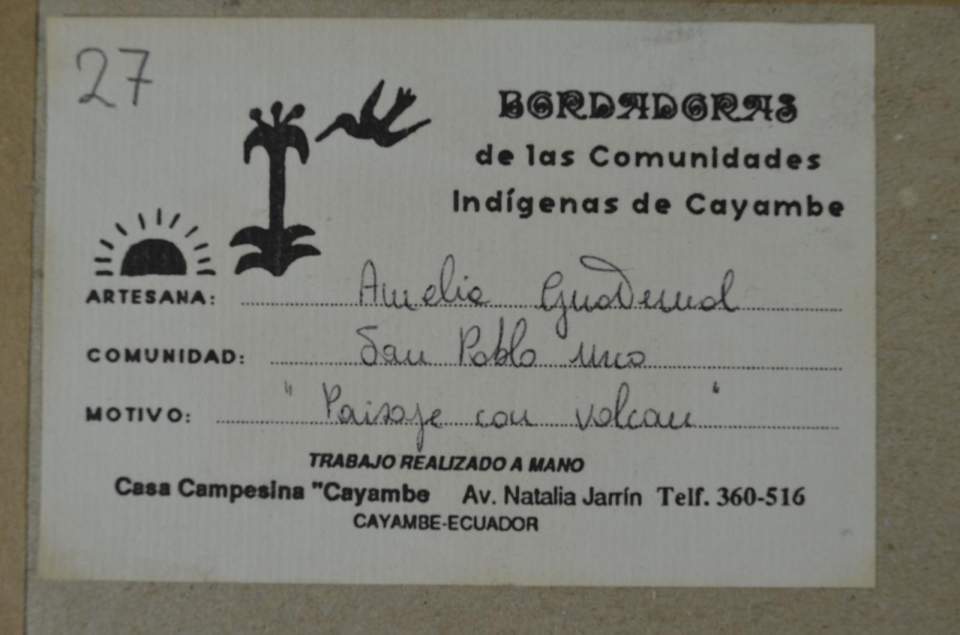 27
BORDADORAS
de las Comunidades
Indígenas de Cayambe
ARTESANA: Amelia
COMUNIDAD: San Pablo uno
MOTIVO: "Paisaje con volcan"
TRABAJO REALIZADO A MANO
Casa Campesina "Cayambe Av. Natalia Jarrín Telf. 360-516
CAYAMBE-ECUADOR